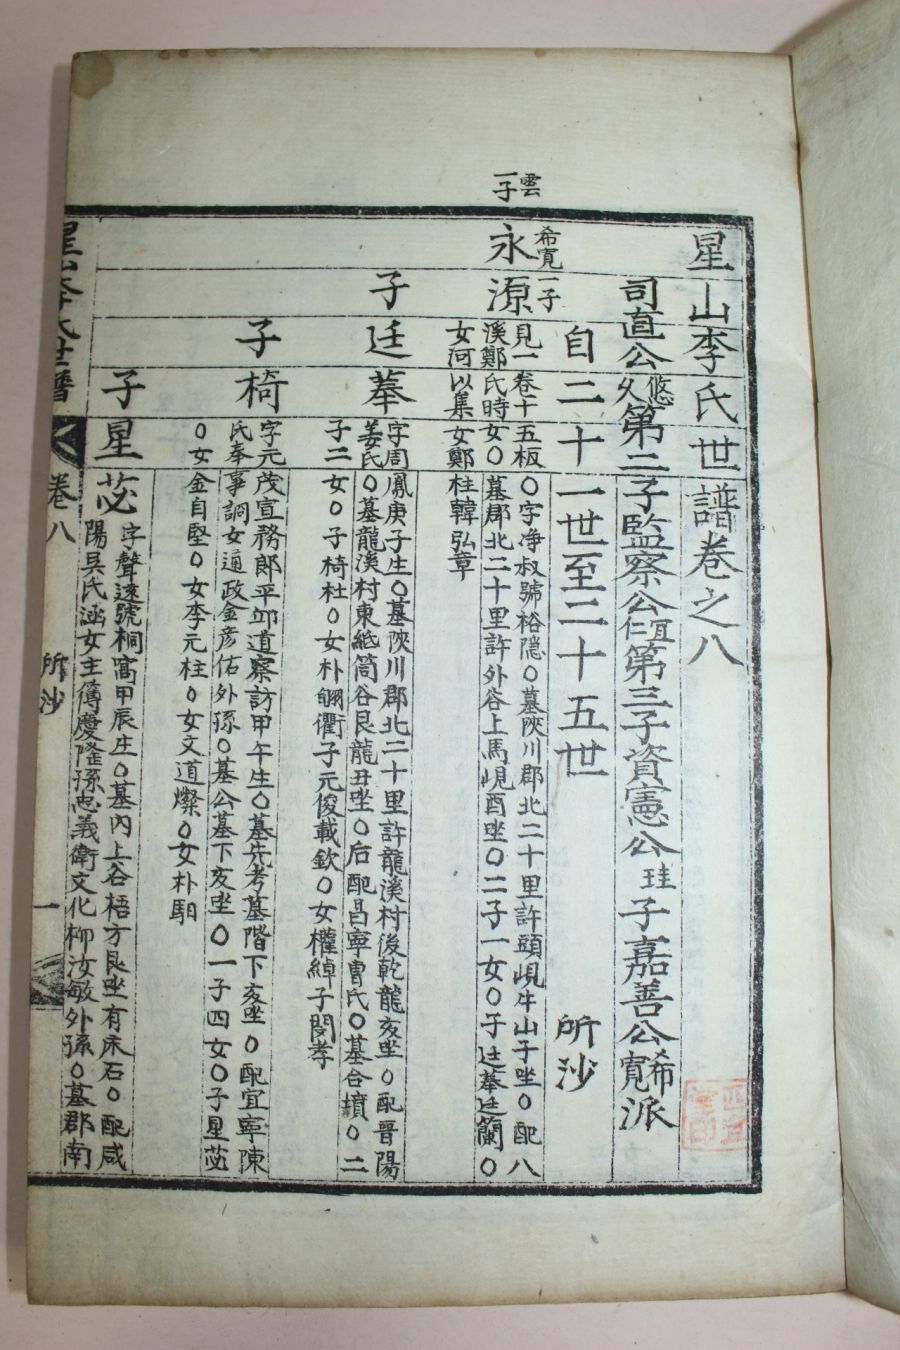 星山李氏世譜卷之八
司直公悠久第二子監察公宜仁第三子資憲公珪子嘉善公希寬派
自二十一世至二十五世 所沙
雲一子
希寬一子
永源
見一卷十五板○字净叔號裕隱○墓陜川郡北二十里許頭峴牛山子坐○配八
溪鄭氏時女○墓郡北二十里許外谷上馬峴酉坐○二子一女○子廷蓁廷蘭○
女河以集女鄭柱韓弘章
子廷蓁
字周鳳庚子生○墓陜川郡北二十里許龍溪村後乾龍亥坐○配晋陽
姜氏○墓龍溪村東紙筒谷艮龍丑坐○后配昌寧曺氏○墓合墳○二
子二女○子椅杜○女朴翩衢子元俊載欽○女權綽子閔孝
子椅
字元茂宣務郎平邱道察訪甲午生○墓先考墓階下亥坐○配宜寧陳
氏奉事詷女通政金彦佑外孫○墓公墓下亥坐○一子四女○子星苾
○女金自堅○女李元柱○女文道燦○女朴馹
子星苾
字聲遠號桐窩甲辰生○墓內上谷梧方艮坐有床石○配咸
陽吳氏涵女主簿慶隆孫忠義衛文化柳汝敏外孫○墓郡南
星山李氏世譜 卷八 所沙 一